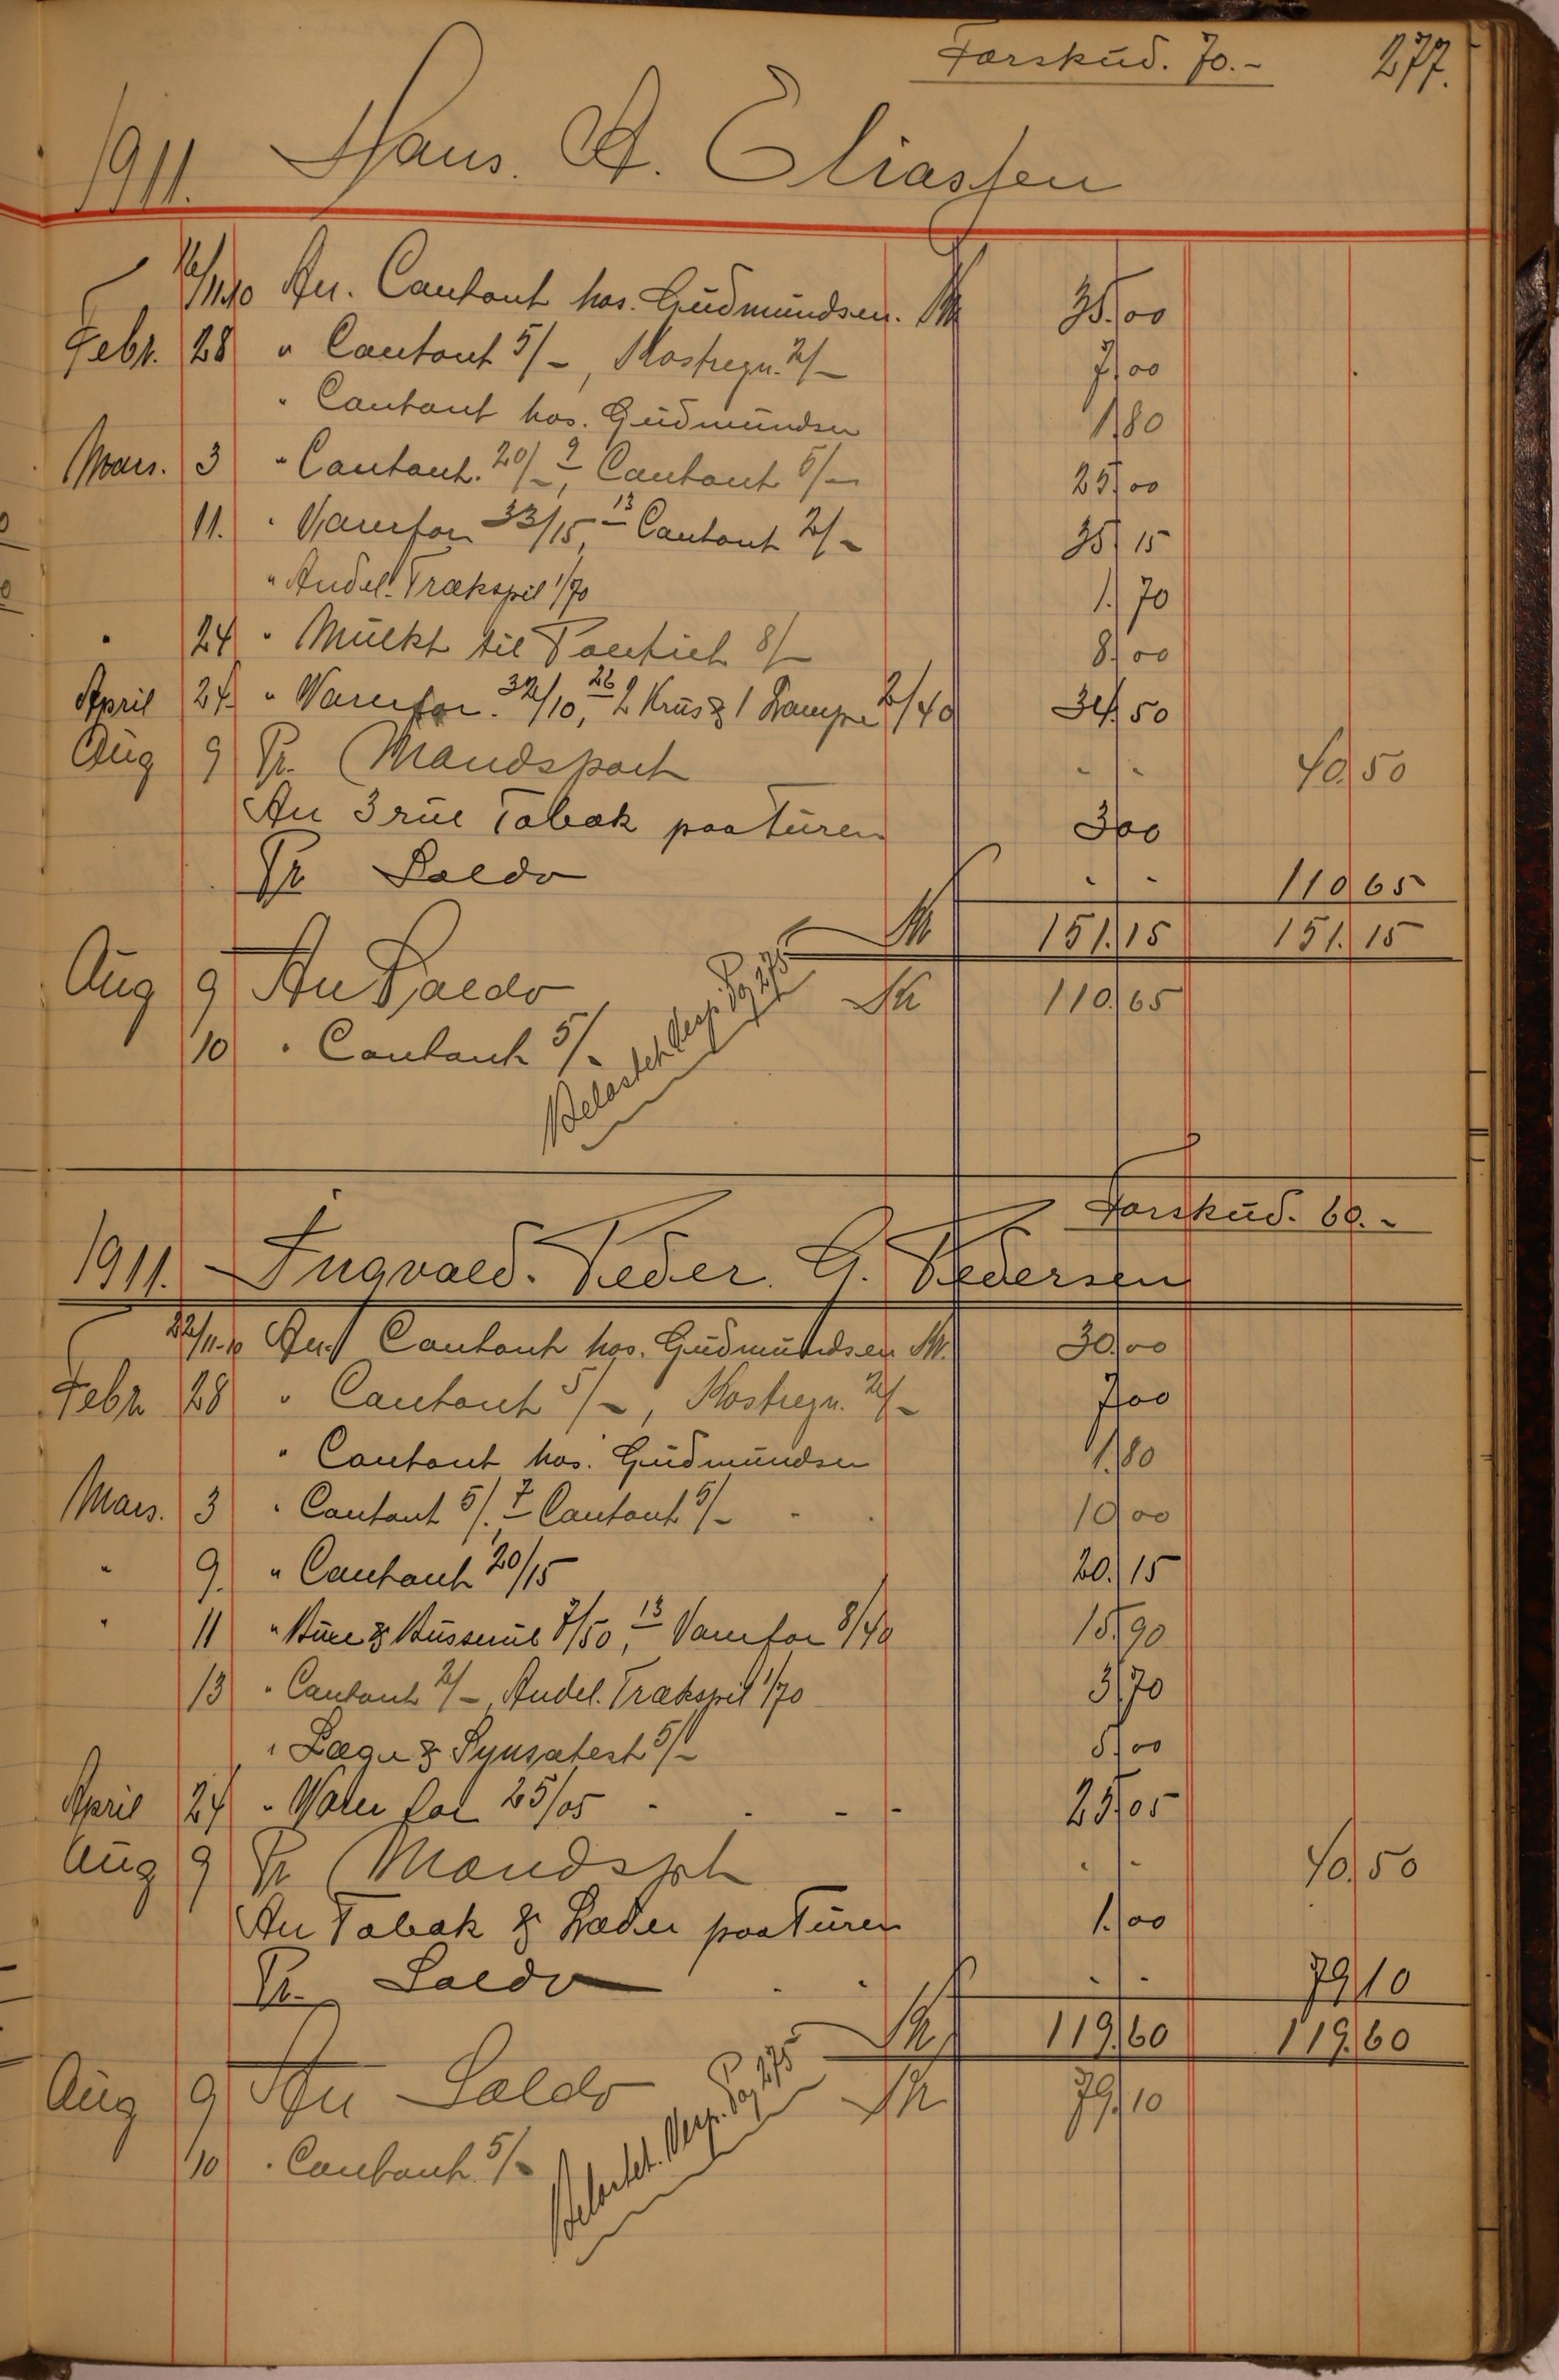 Forskud. 70.- 277.
1911. Hans. A. Eliassen
16/11.10 An. Contant hos. Gudmundsen. Kr 35.00
Febr. 28 " Contant 5/-, Kostregn. 2/- 7.00
" Contant hos. Gudmundsen 1.80
Mars. 3 " Contant. 20/-, 9 Contant 5/- 25.00
11. " Varerfor 33/15, 13 Contant 2/- 35.15
" Andel. Trækspil 1/70 1.70
" 24 " Mulkt til 8/- 8.00
April 24 " Varerfor. 32/10, 26 2 Krus & 1 Lampe 2/40 34.50
Aug 9 Pr. Mandspart - - 40.50
An 3 rul Tobak paa Turen 3.00
Pr Saldo - - 110.65
Kr 151.15 151.15
Aug 9 An Saldo Kr 110.65
10 " Contant 5/-
Belastet Verp. Pag 275
Forskud. 60.-
1911. Ingvald. Peder. G. Pedersen
22/11.10 An. Contant hos. Gudmundsen Kr. 30.00
Febr 28 " Contant 5/-, Kostregn. 2/- 7.00
" Contant hos. Gudmundsen 1.80
Mars. 3 " Contant 5/-, 7 Contant 5/- 10.00
" 9. " Contant 20/15 20.15
" 11 " & Busserul 7/50, 13 Varerfor 8/40 15.90
13 " Contant 2/-, Andel. Trækspil 1/70 3.70
" Læge & Synsatest 5/- 5.00
April 24 " Varer for 25/05 - - - - 25.05
Aug 9 Pr Mandspt - - 40.50
An Tobak & Læder paa Turen 1.00
Pr. Saldo - - 79.10
Kr 119.60 119.60
Aug 9 An Saldo Kr 79.10
10 " Contant 5/-
Belastet. Verp. Pag 275